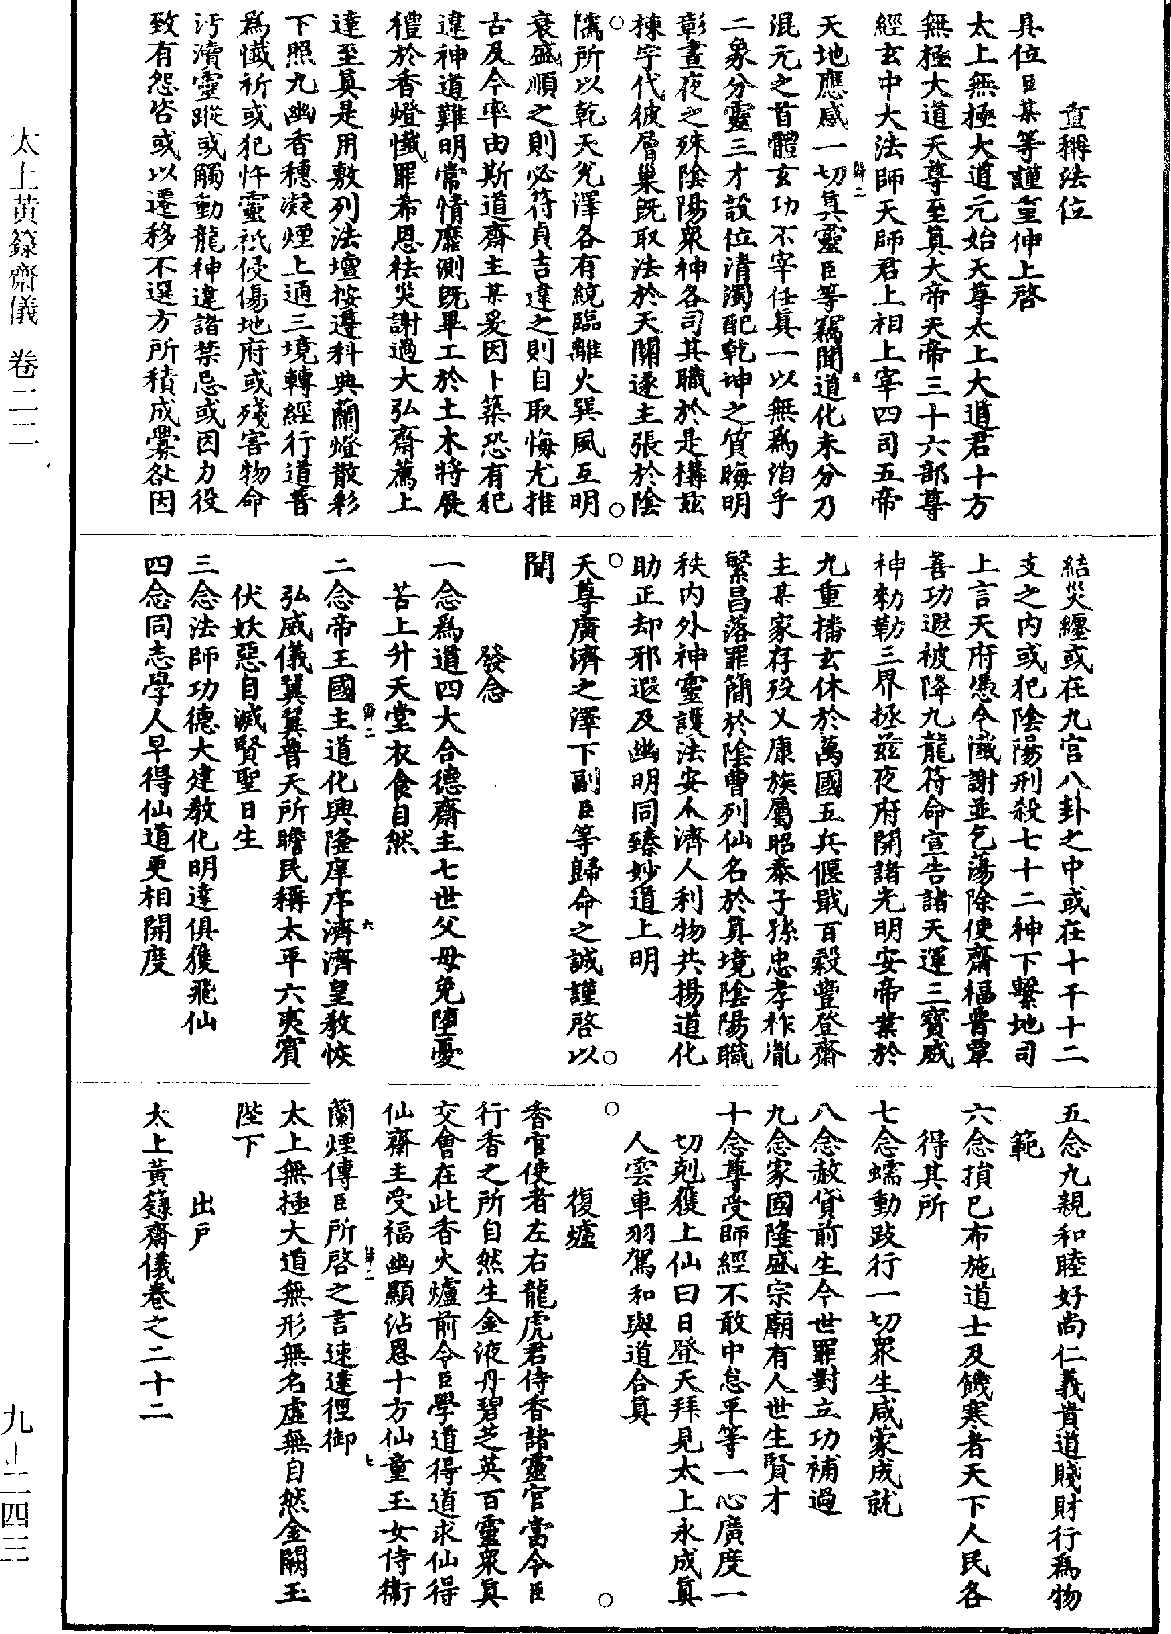 重稱法位
具位臣某等謹重伸上啓
太上無極大道元始天尊太上大道君十方
無極大道天尊至真大帝天帝三十六部尊
經玄中大法師天師君上相上宰四司五帝
天地應感一切真靈臣等竊聞道化未分乃
混元之首體玄功不宰任真一以無為洎乎
二象分靈三才設位清濁配乾坤之質晦明
彰晝夜之殊陰陽眾神各司其職於是構茲
棟宇代彼層巢既取法於天關遂主張於陰
隲所以乾天兌澤各有統臨離火巽風互明
衰盛順之則必符貞吉違之則自取悔尤推
古及今率由斯道齋主某爰因卜築恐有犯
違神道難明常情靡測既畢工於土木將展
禮於香燈懺罪希恩祛災謝過大弘齋薦上
達至真是用敷列法壇按遵科典蘭燈散彩
下照九幽香穗凝煙上通三境轉經行道普
為懺祈或犯忤靈祇侵傷地府或殘害物命
汙瀆靈蹤或觸動龍神違諸禁忌或因力役
致有怨咨或以遷移不選方所積成釁咎因
結災纏或在九宮八卦之中或在十干十二
支之內或犯陰陽刑殺七十二神下繫地司
上言天府憑今懺謝並乞蕩除使齋福普覃
善功遐被降九龍符命宣告諸天運三寶威
神勑勒三界拯茲夜府開諸光明安帝業於
九重播玄休於萬國五兵偃戢百穀豐登齋
主某家存歿乂康族屬昭泰子孫忠孝祚胤
繁昌落罪簡於陰曹列仙名於真境陰陽職
秩內外神靈護法安人濟人利物共揚道化
助正却邪遐及幽明同臻妙道上明
天尊廣濟之澤下副臣等歸命之誠謹啓以
聞
發念
一念為道四大合德齋主七世父母免墮憂
苦上升天堂衣食自然
二念帝王國主道化興隆庠序濟濟皇教恢
弘威儀翼翼普天所瞻民稱太平六夷賓
伏妖惡自滅賢聖日生
三念法師功德大建教化明達俱獲飛仙
四念同志學人早得仙道更相開度
五念九親和睦好尚仁義貴道賤財行為物
範
六念損己布施道士及饑寒者天下人民各
得其所
七念蠕動跂行一切眾生咸蒙成就
八念赦貸前生今世罪對立功補過
九念家國隆盛宗廟有人世生賢才
十念尊受師經不敢中怠平等一心廣度一
切剋獲上仙白日登天拜見太上永成真
人雲車羽駕和與道合真
復爐
香官使者左右龍虎君侍香諸靈官當令臣
行香之所自然生金液丹碧芝英百靈眾真
交會在此香火爐前令臣學道得道求仙得
仙齋主受福幽顯沾恩十方仙童玉女侍衛
蘭煙傳臣所啓之言速達徑御
太上無極大道無形無名虛無自然金闕玉
陛下
出戶
太上黃籙齋儀卷之二十二
太上黃籙齋儀 卷二二
九—二四三